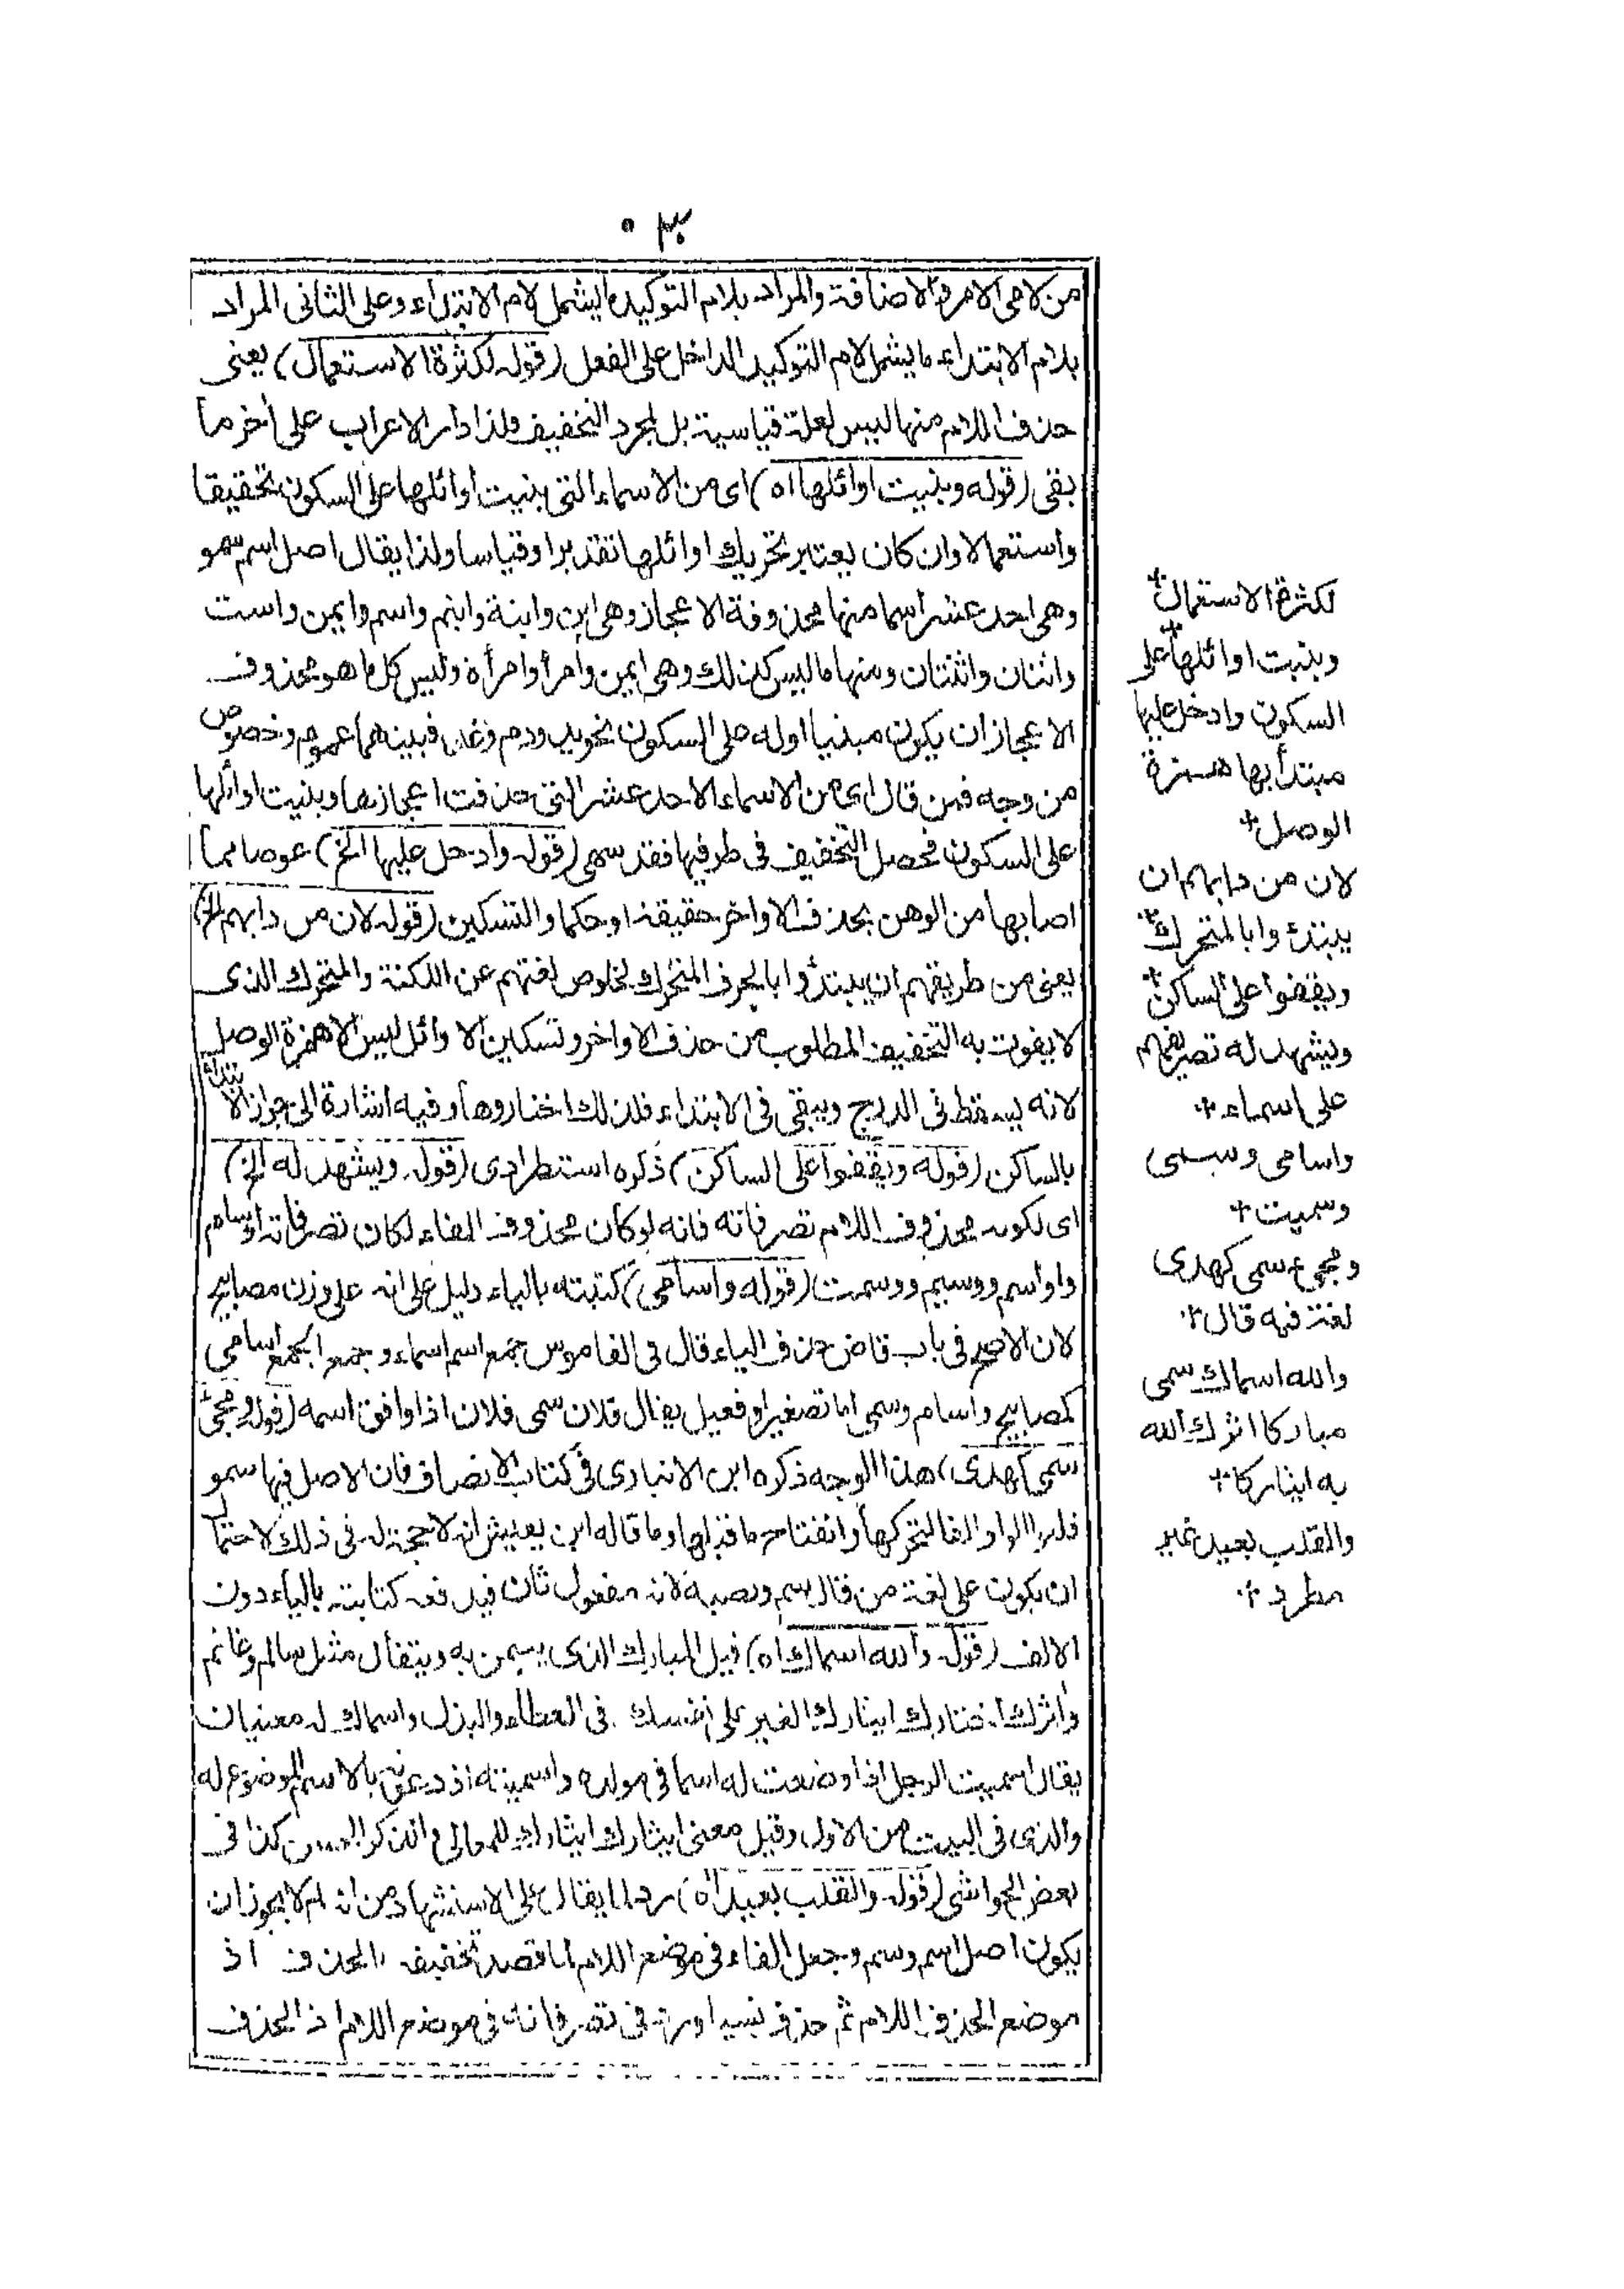 ٣٠
من لامى الامر والاضافة والمراد بلام التوكيد ما يشمل لام الابتداء وعلى الثانى المراد
بلام الابتداء ما يشمل لام التوكيد الداخل على الفعل (قوله لكثرة الاستعمال) يعنى
حذف اللام منها ليس لعلة قياسية بل لمجرد التخفيف ولذا دار الاعراب على أخر ما
بقى (قوله وبنيت اوائلها اه) اى من الاسماء التى بنيت أوائلها على السكون تحقيقا
واستعمالا وان كان يعتبر تحريك اوائلها تقديرا وقياسا ولذا يقال اصل اسم سمو
وهى احد عشر اسما منها محذوفة الاعجاز وهى ابن وابنة وابنم واسم وايمن واست
واثنان واثنتان ومنها ما ليس كذلك وهى ايمن وامرأ وامرأة وليس كل ما هو محذوف
الاعجاز ان يكون مبنيا اوله على السكون نحو يد ودم وغد فبينهما عموم وخصوص
من وجه فمن قال اى من الاسماء الاحد عشر التى حذفت اعجازها وبنيت اوائلها
على السكون فحصل التخفيف فى طرفيها فقد سهى (قوله وادخل عليها الخ) عوضا مما
اصابها من الوهن بحذف الاواخر حقيقة او حكما والتسكين (قوله لان من دابهم الخ)
يعنى من طريقهم ان يبتدؤا بالحرف المتحرك لخلوص لغتهم عن اللكنة والمتحرك الذى
لا يفوت به التخفيف المطلوب من حذف الاواخر وتسكين الاوائل ليس الا همزة الوصل
لانه يسقط فى الدرج ويبقى فى الابتداء فلذلك اختاروها وفيه اشارة الى جواز الابتداء
بالساكن (قوله ويقفوا على الساكن) ذكره استطرادى (قوله ويشهد له الخ)
اى لكونه محذوف اللام تصرفاته فانه لو كان محذوف الفاء لكان تصرفاته اوسام
واواسم ووسيم ووسمت (قوله واسامى) كتبته بالياء دليل على انه على وزن مصابيح
لان الاصح فى باب قاض حذف الياء قال فى القاموس جمع اسم اسماء وجمع الجمع اسامى
كمصابيح واسام وسمى اما تصغير او فعيل يقال فلان سمى فلان اذا وافق اسمه (قوله ومجئ
سمى كهدى) هذا الوجه ذكره ابن الانبارى فى كتاب الانصاف فان الاصل فيها سمو
قلبوا الواو الفا لتحركها وانفتاح ما قبلها وما قاله ابن يعيش انه لا حجة له فى ذلك لاحتمال
ان يكون على لغة من قال سم ونصبه لانه مفعول ثان فيدفعه كتابته بالياء دون
الالف (قوله والله اسماك اه) قيل المبارك الذى يتيمن به ويتفأل مثل سالم وغانم
وأثرك اختارك ايثارك الغير على نفسك فى العطاء والبذل واسماك له معنيان
يقال اسميت الرجل اذا وضعت له اسما فى مولده واسميته اذ دعوته بالاسم الموضوع له
والذى فى البيت من الاول وقيل معنى ايثارك ايثارك للمعالى والذكر الحسن كذا فى
بعض الحواشى (قوله والقلب بعيد اه) رد لما يقال على الاستشهاد من انه لم لا يجوز ان
يكون اصل اسم وسم وجعل الفاء فى موضع اللام لما قصد تخفيفه بالحذف اذ
موضع الحذف اللام ثم حذف نسيا ورد فى تصرفاته فى موضع اللام اذ الحذف
لكثرة الاستعمال
وبنيت اوائلها على
السكون وادخل عليها
مبتدأ بها همزة
الوصل
لان من دابهم ان
يبتدؤا بالمتحرك
ويقفوا على الساكن
ويشهد له تصريفهم
على اسماء
واسامى وسمى
وسميت
ومجئ سمى كهدى
لغة فيه قال
والله اسماك سمى
مباركا اثرك الله
به ايثاركا
والقلب بعيد غير
مطرد